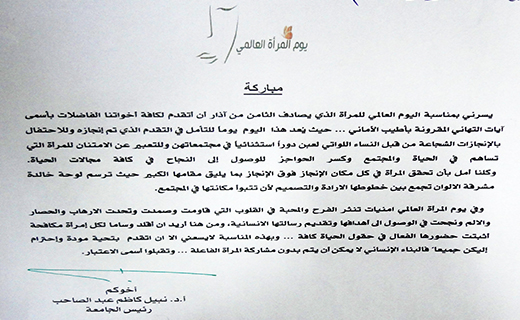 يوم المرأة العالمي
مباركة
يسرني بمناسبة اليوم العالمي للمرأة الذي يصادف الثامن من آذار أن أتقدم لكافة أخواتنا الفاضلات بأسمى
آيات التهاني المقرونة بأطيب الأماني ... حيث يُعد هذا اليوم يوماً للتأمل في التقدم الذي تم إنجازه وللاحتفال
بالإنجازات الشجاعة من قبل النساء اللواتي لعبن دوراً استثنائياً في مجتمعاتهن وللتعبير عن الامتنان للمرأة التي
تساهم في الحياة والمجتمع وكسر الحواجز للوصول إلى النجاح في كافة مجالات الحياة.
وكلنا أمل بأن تحقق المرأة في كل مكان الإنجاز فوق الإنجاز بما يليق مقامها الكبير حيث ترسم لوحة خالدة
مشرقة الالوان تجمع بين خطوطها الارادة والتصميم لأن تتبوأ مكانتها في المجتمع.
وفي يوم المرأة العالمي امنيات تنثر الفرح والمحبة في القلوب التي قاومت وصمدت وتحدت الارهاب والحصار
والالم ونجحت في الوصول الى اهدافها وتقديم رسالتها الانسانية، ومن هنا اريد ان أقلد وساما لكل إمرأة مكافحة
أثبتت حضورها الفعال في حقول الحياة كافة ... وبهذه المناسبة لايسعني الا ان اتقدم بتحية مودة وإحترام
إليكن جميعا فالبناء الإنساني لا يمكن أن يتم بدون مشاركة المرأة الفاعلة ... وتقبلوا أسمى الاعتبار.
أخوكم
أ.د. نبيل كاظم عبد الصاحب
رئيس الجامعة